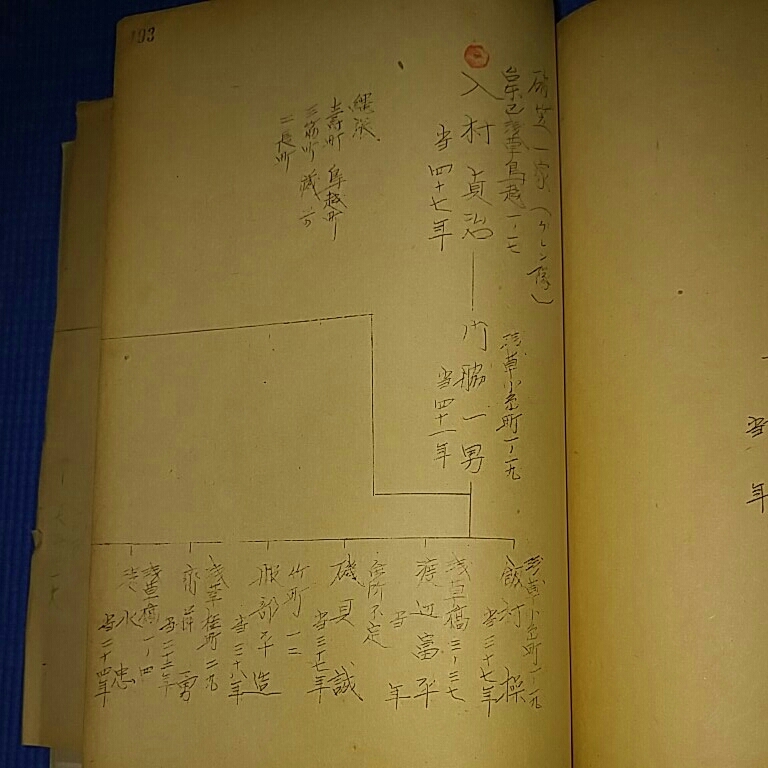 193
芝一家
入村貞治
当四十七年
縄張
三筋町
二長町
鳥越町
浅草小島町一ノ一九
門脇一男
当四十一年
浅草小島町一ノ一九
飯村操
当三十七年
浅草橋三ノ三七
渡辺富平
当 年
住所不定
磯貝誠
当三十七年
竹町一二
服部平造
当三十八年
浅草桂町二九
勇
当二十三年
浅草橋一ノ四
水忠
当二十四年
当
年